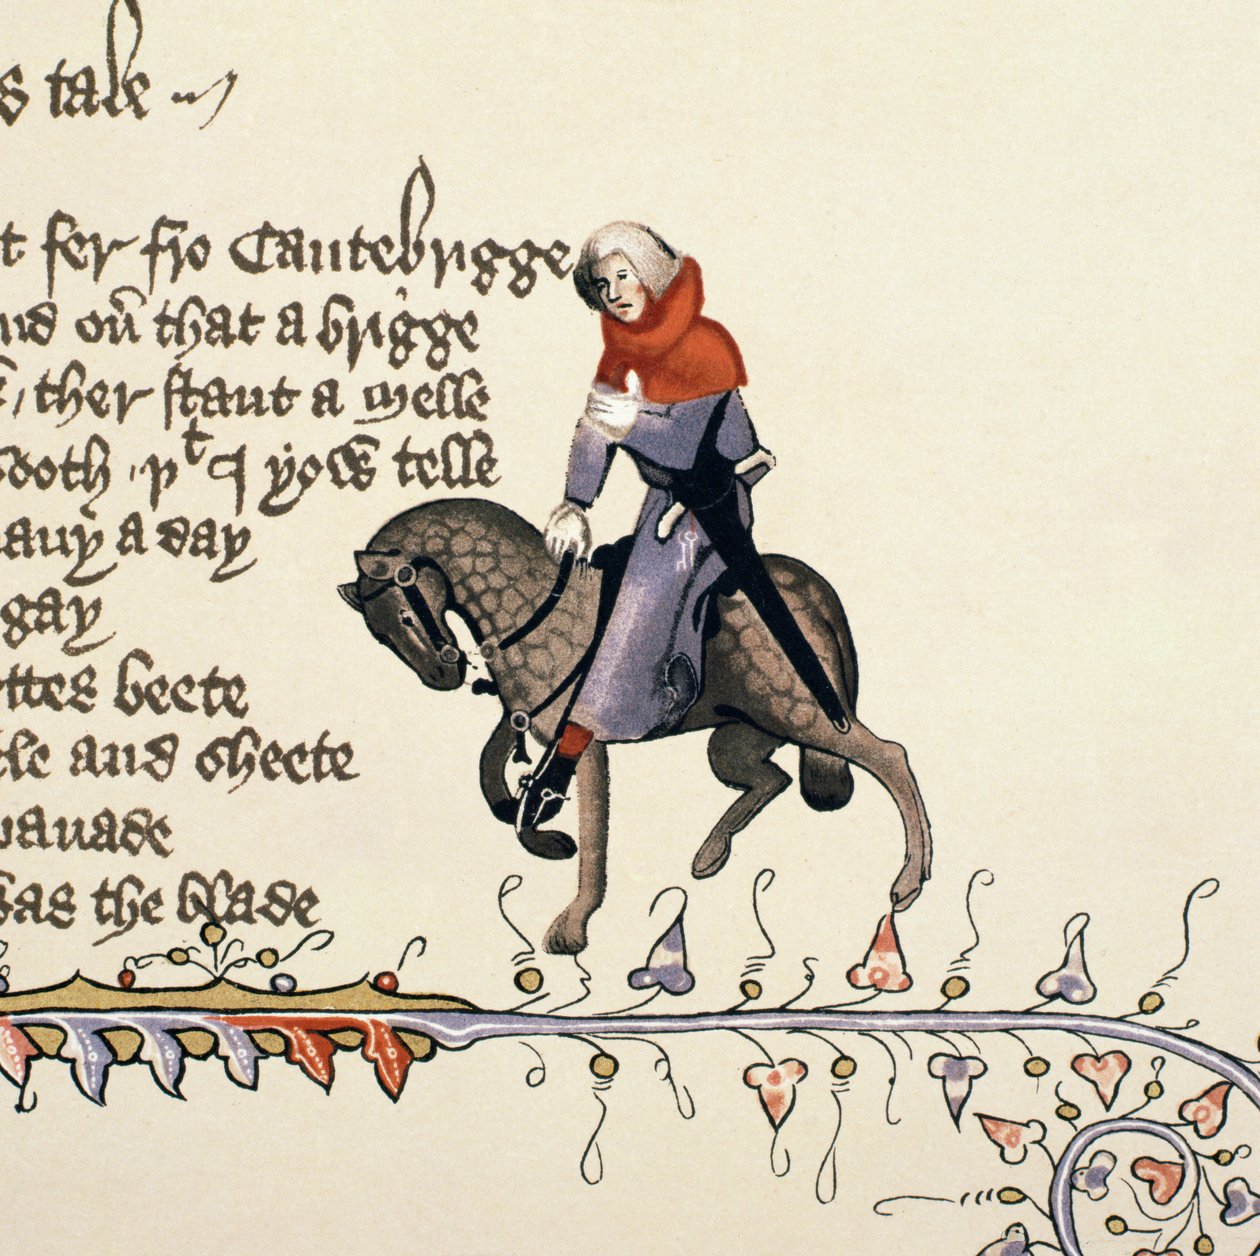 s tale
t fer fro Cantebrigge
nd ou͛ that a brigge
, ther stant a Melle
ooth , þt I yow telle
any a day
gay
ttes beete
le and sheete
pauade
was the blade